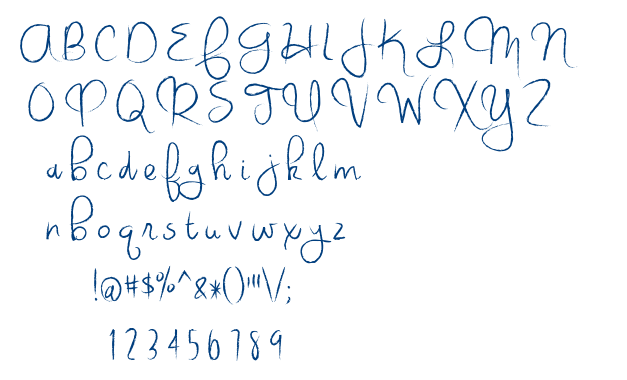 ABCDEFGHIJKLMN
OPQRSTUVWXYZ
abcdefghijklm
nboqrstuvwxyz
!@#$%^&*()'"\/;
123456789